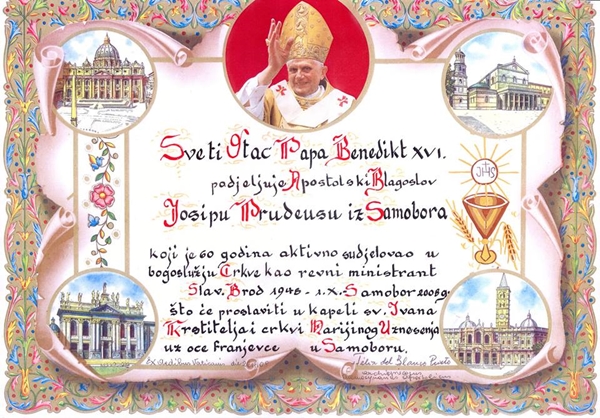 Sveti Otac Papa Benedikt XVI.
podjeljuje Apostolski Blagoslov
Josipu Prudeusu iz Samobora
koji je 60 godina aktivno sudjelovao u
bogoslužju Crkve kao revni ministrant
Slav. Brod 1945 - 1.X.- Samobor 2005 g.
što će proslaviti u kapeli sv. Ivana
Krstitelja i crkvi Marijinog Uznesenja
uz oce Franjevce u Samoboru.
JHS
Ex Aedibus Vaticanis
Felix del Blanco Prieto